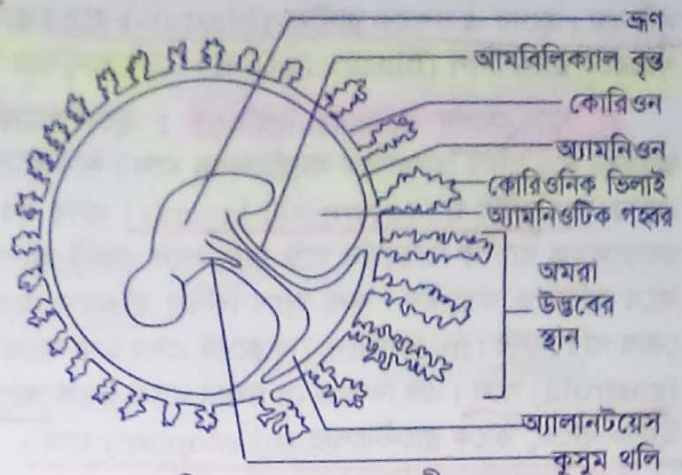 ভ্রূণ
আমবিলিক্যাল বৃন্ত
কোরিওন
অ্যামনিওন
কোরিওনিক ভিলাই
অ্যামনিওটিক গহ্বর
অমরা
উদ্ভবের
স্থান
অ্যালানটয়েস
কুসুম থলি